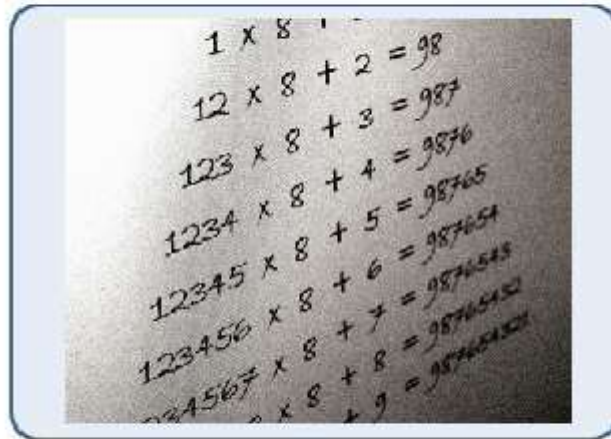 1 × 8 +
12 × 8 + 2 = 98
123 × 8 + 3 = 987
1234 × 8 + 4 = 9876
12345 × 8 + 5 = 98765
123456 × 8 + 6 = 987654
234567 × 8 + 7 = 9876543
× 8 + 8 = 98765432
+ 9 = 987654321